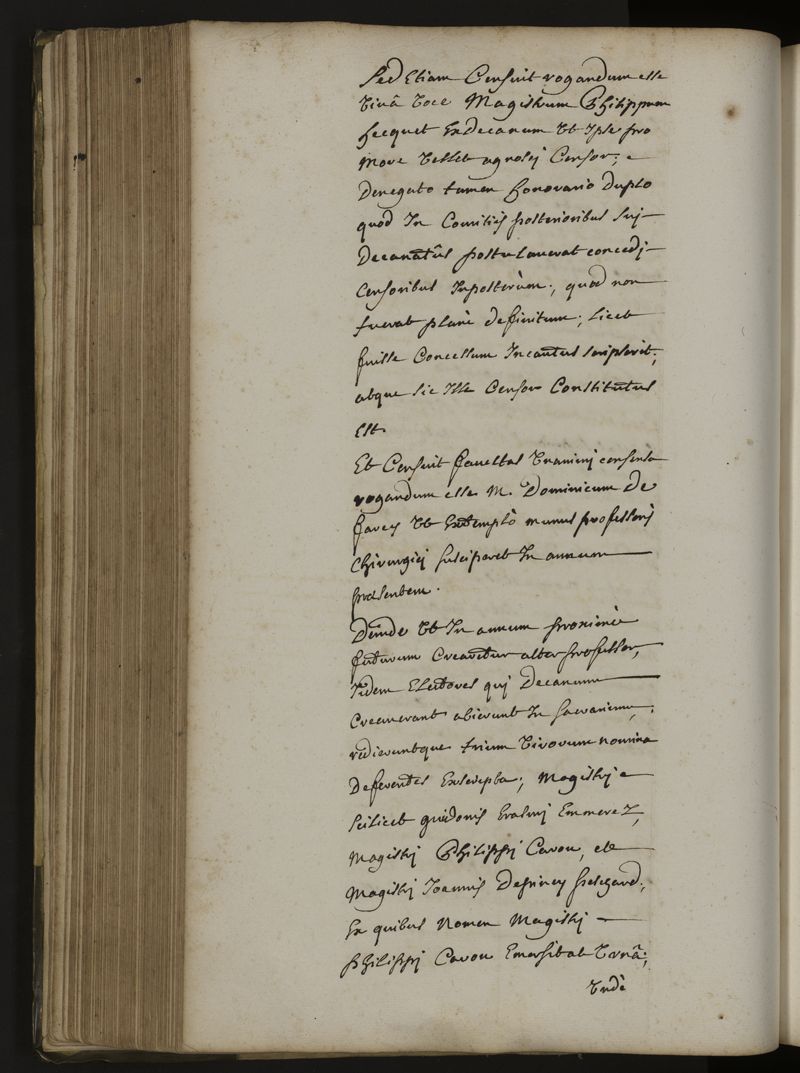 Sed Etiam Censuit rogandum esse
Vivâ Voce Magistrum Philippum
hecquet Exdecanum Vt Ipse pro
more Vellet agnosci Censor;
Denegato tamen honorario Duplo
quod In Comitiis posterioribus sui
Decanatûs postulaverat concedi
Censoribus Inposterùm, quod non
fuerat planè definitum; licet
fuisse Concessum Incautus scripserit;
atque sic Ille Censor Constitutus
Est.
Et Censuit facultas Vnanimi consensu
rogandum esse M. Dominicum De
farcy Vt Extemplò munus professoris
Chirurgici susciperet In annum
præsentem.
Deinde Vt In annum proximè
futurum Crearetur alter professor,
Iidem Electores qui Decanum
Creaverant abierunt In sacrarium,
redieruntque trium Virorum nomina
Deferentes Exscripta; Magistri
scilicet guidonis Erasmi Emmerez,
Magistri Philippi Caron, et
Magistri Joannis Despres
Ex quibus Nomen Magistri
philippi Caron Emersit ab Vrnâ;
Vndè